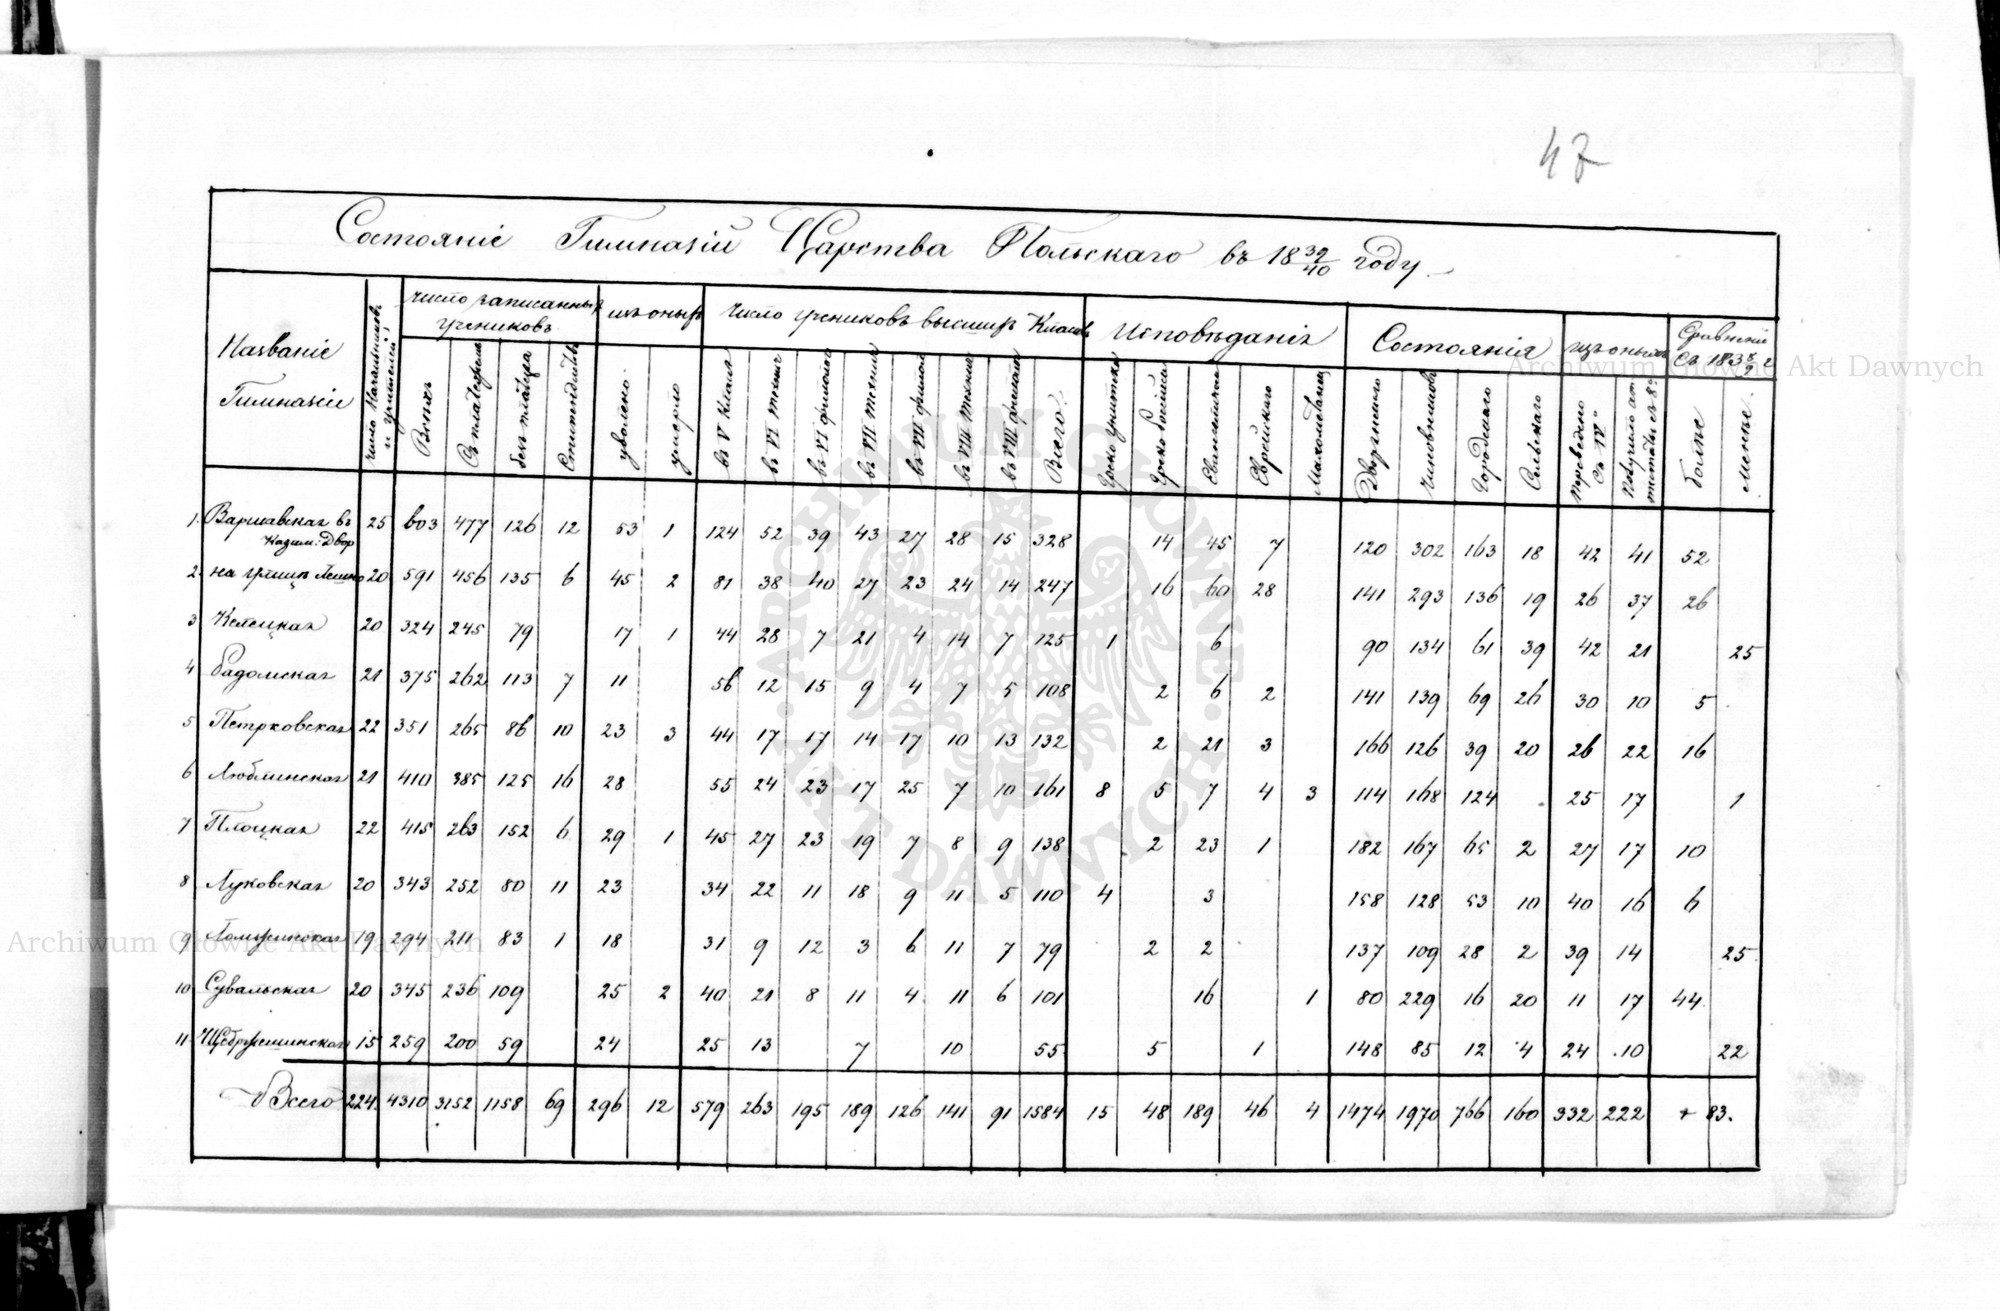 47
Состояніе Гимназій Царства Польскаго въ 18 39/40 году
Названіе Гимназіи
Число Начальниковъ и учителей
Число записанныхъ учениковъ
Всѣхъ
безъ
изъ оныхъ
уволено
умерло
Число учениковъ высшихъ Классовъ
въ V Класѣ
въ VI технич
въ VI филол
въ VII технич
въ VII филол
въ VIII технич
въ VIII филол
Всего
Исповѣданія
Еврейскаго
Состоянія
Городскаго
Сельскаго
изъ оныхъ
Сравненіе
Болѣе
Менѣе
1. Варшавская въ Казим: Двор 25 603 477 126 12 53 1 124 52 39 43 27 28 15 328 14 45 7 120 302 163 18 42 41 52
2. на улицѣ Лешно 20 591 456 135 6 45 2 81 38 40 27 23 24 14 247 16 60 28 141 293 136 19 26 37 26
3 Келецкая 20 324 245 79 17 1 44 28 7 21 4 14 7 125 1 6 90 134 61 39 42 21 25
4 Радомская 21 375 262 113 7 11 56 12 15 9 4 7 5 108 2 6 2 141 139 69 26 30 10 5
5 Петрковская 22 351 265 86 10 23 3 44 17 17 14 17 10 13 132 2 21 3 166 126 39 20 26 22 16
6 Люблинская 21 410 385 125 16 28 55 24 23 17 25 7 10 161 8 5 7 4 3 114 168 124 25 17 1
7 Плоцкая 22 415 263 152 6 29 1 45 27 23 19 7 8 9 138 2 23 1 182 167 65 2 27 17 10
8 Луковская 20 343 252 80 11 23 34 22 11 18 9 11 5 110 4 3 158 128 53 10 40 16 6
9 Ломжинская 19 294 211 83 1 18 31 9 12 3 6 11 7 79 2 2 137 109 28 2 39 14 25
10 Сувальская 20 345 236 109 25 2 40 21 8 11 4 11 6 101 16 1 80 229 16 20 11 17 44
11 Щебржешинская 15 259 200 59 24 25 13 7 10 55 5 1 148 85 12 4 24 10 22
Всего 224 4310 3152 1158 69 296 12 579 263 195 189 126 141 91 1584 15 48 189 46 4 1474 1970 766 160 332 222 + 83.
ARCHIWUM GŁÓWNE AKT DAWNYCH
Archiwum Główne Akt Dawnych
Archiwum Główne Akt Dawnych